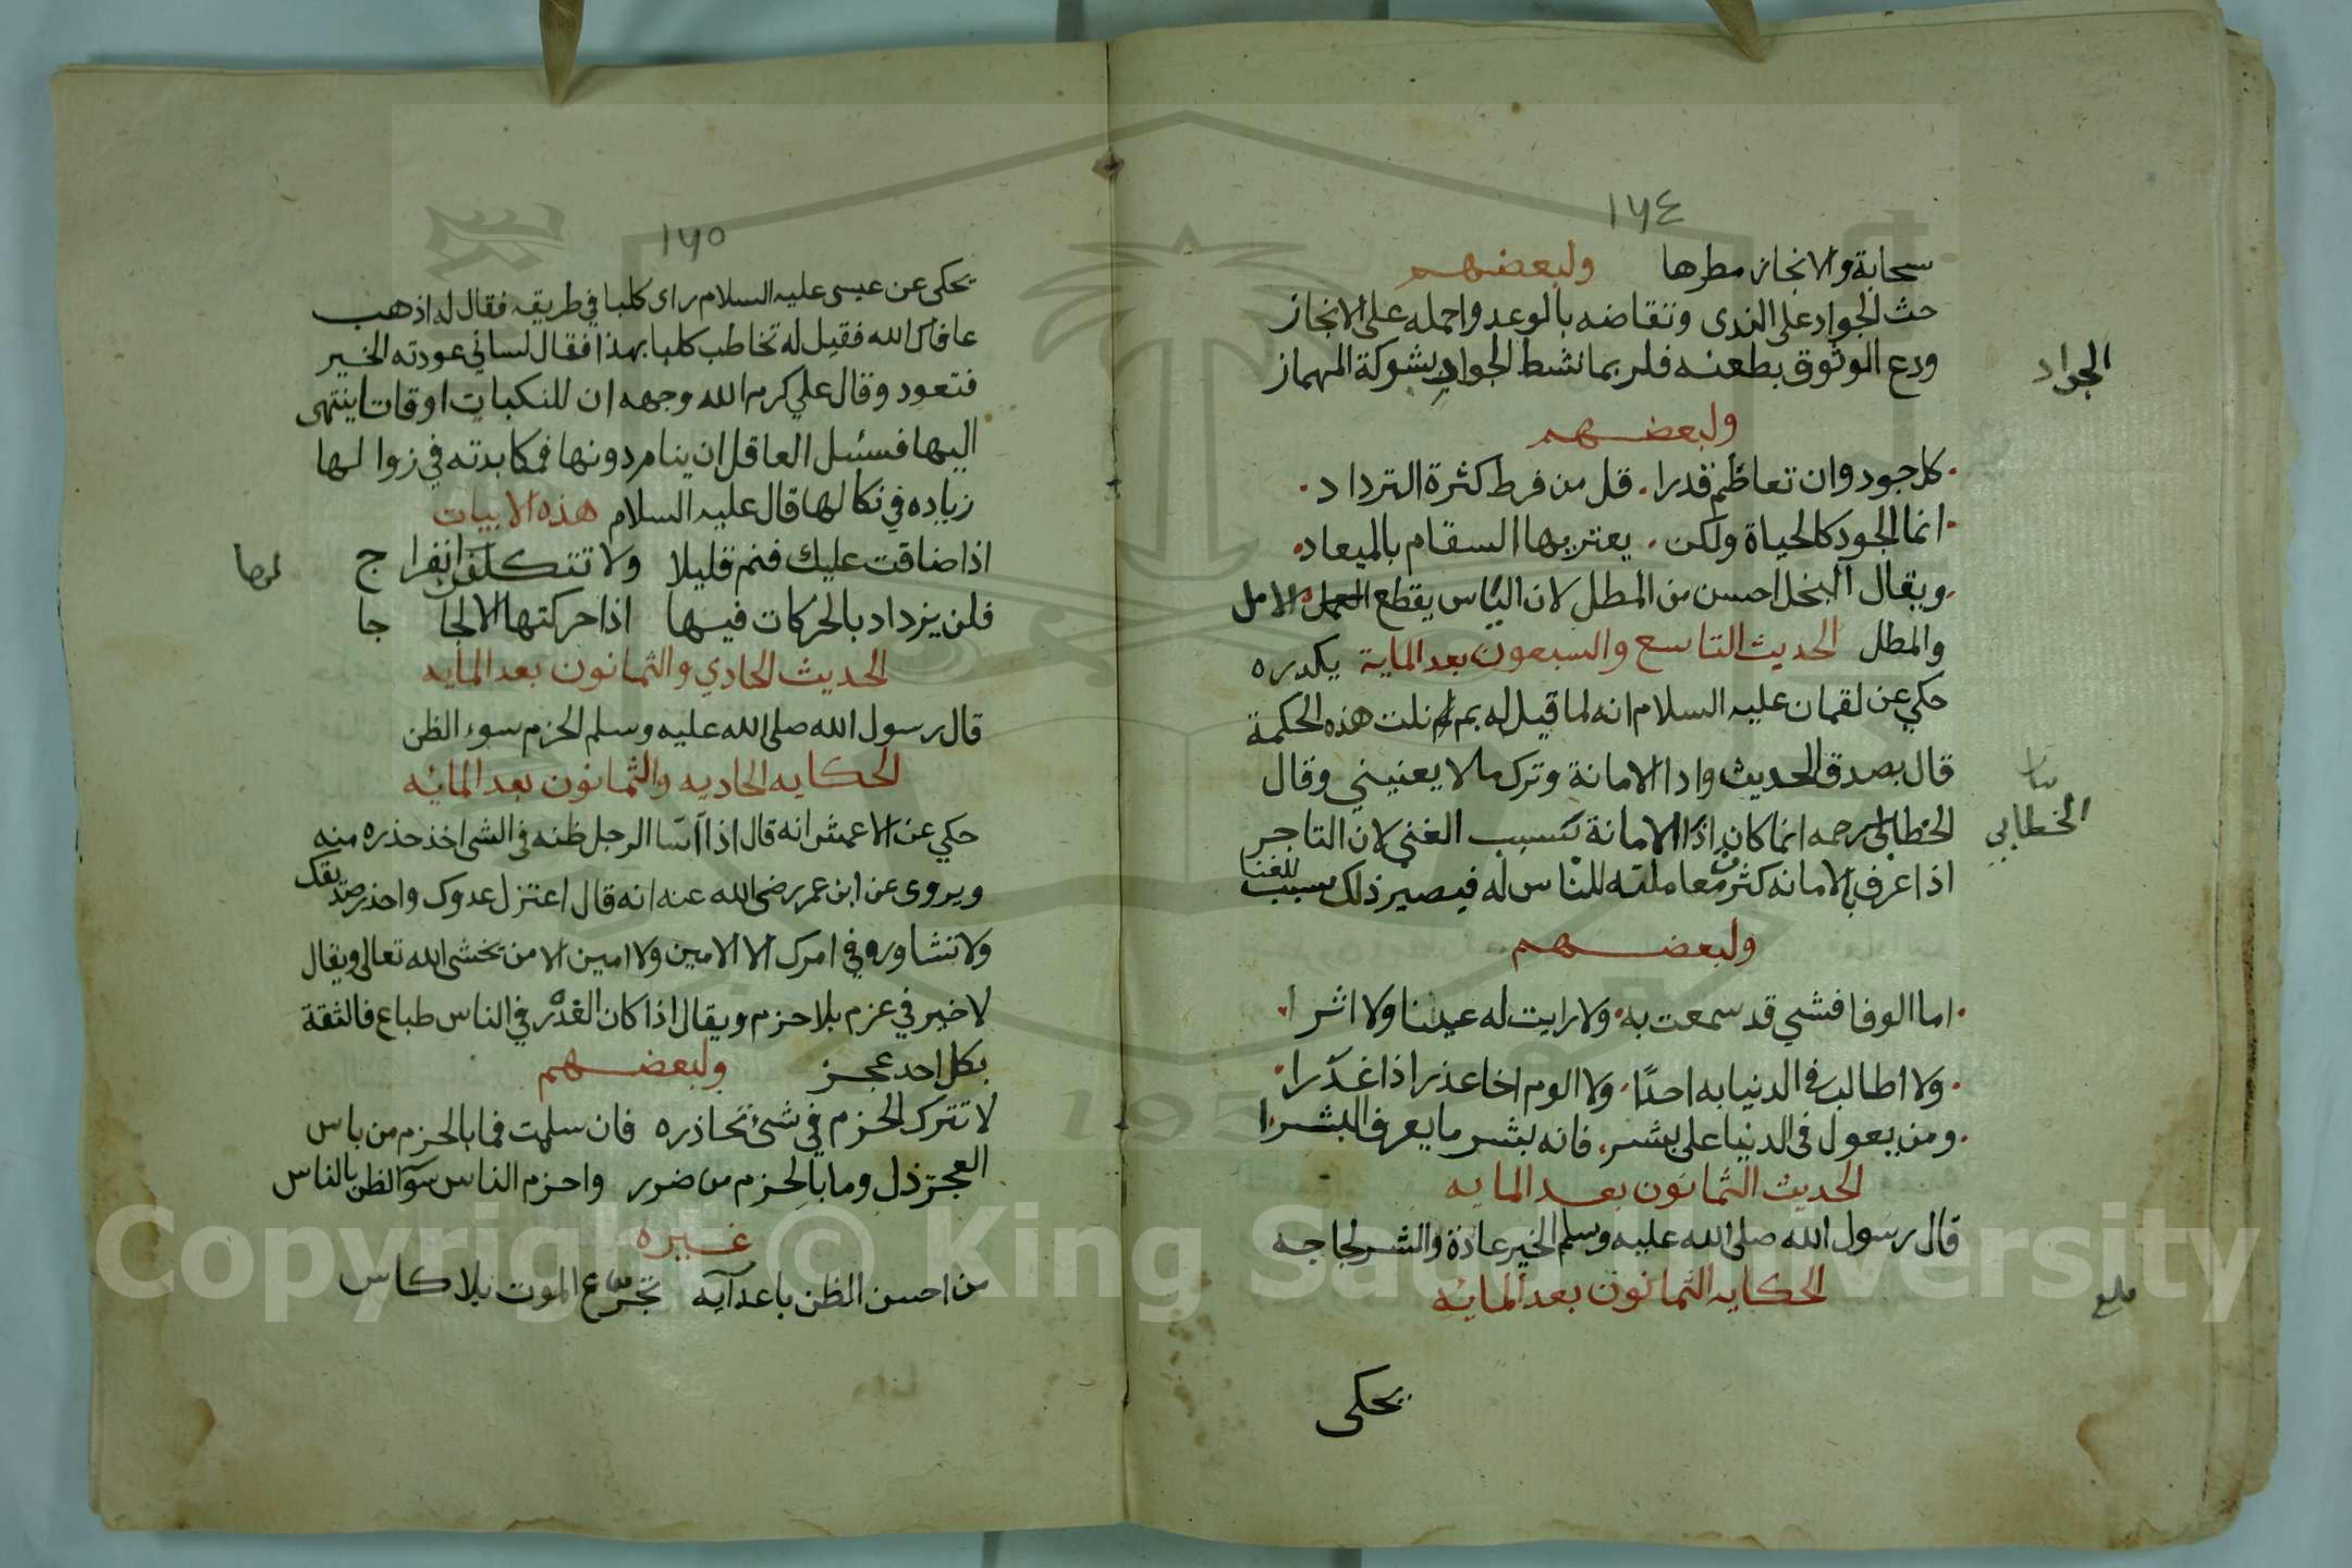 ١٦٤
سحابة والانجاز مطرها ولبعضهم
حث الجواد على الندى وتقاضه بالوعد واحمله على الانجاز
ودع الوثوق بطعنه فلربما نشط الجواد بشوكة المهماز
الجواد
ولبعضهم
كل جود وان تعاظم قدرا قل من فرط كثرة الترداد
انما الجود كالحياة ولكن يعتريها السقام بالميعاد
ويقال البخل احسن من المطل لان الياس يقطع العمل الامل
والمطل الحديث التاسع والسبعون بعد الماية يكدره
حكي عن لقمان عليه السلام انه لما قيل له بم نلت هذه الحكمة
قال بصدق الحديث وادا الامانة وترك ما لا يعنيني وقال
الخطابي رحمه انما كان اذا الامانة تسبب الغني لان التاجر
بيان
الخطابي
اذا عرف بالامانه كثرت معاملته للناس له فيصير ذلك سبب للغنا
ولبعضهم
اما الوفا فشي قد سمعت به ولا رايت له عينا ولا اثرا
ولا اطالب في الدنيا به احدًا ولا الوم اخا عذر اذا غدرا
ومن يعول في الدنيا على بشر فانه بشر ما يعرف البشرا
الحديث الثمانون بعد المايه
قال رسول الله صلى الله عليه وسلم الخير عادة والشر لجاجه
الحكايه الثمانون بعد المائه
يحكى
١٦٥
يحكى عن عيسى عليه السلام راى كلبا في طريقه فقال له اذهب
عافاك الله فقيل له تخاطب كلبا بهذا فقال لساني عودته الخير
فتعود وقال علي كرم الله وجهه ان للنكبات اوقاتا ينتهى
اليها فسئيل العاقل ان ينام دونها فمكابدته في زوالها
زياده في نكالها قال عليه السلام هذه الابيات
اذا ضاقت عليك فنم قليلا ولا تتكلف انفراج
لها
فلن يزداد بالحركات فيها اذا حركتها الالجاجا
الحديث الحادي والثمانون بعد المايه
قال رسول الله صلى الله عليه وسلم الحزم سوء الظن
الحكايه الحاديه والثمانون بعد المائه
حكي عن الاعمش انه قال اذا اسا الرجل ظنه في الشي اخذ حذره منه
ويروى عن ابن عمر رضى الله عنه انه قال اعتزل عدوك واحذر صديقك
ولا تشاور في امرك الا الامين ولا امين الا من يخشى الله تعالى ويقال
لا خير في عزم بلا حزم ويقال اذا كان الغدر في الناس طباع فالثقة
بكل احد عجز ولبعضهم
لا تترك الحزم في شئ تحاذره فان سلمت فما بالحزم من باس
العجز ذل وما بالحزم من ضرر واحزم الناس سؤ الظن بالناس
غيره
من احسن الظن باعدآيه تجرع الموت بلا كاس
Copyright © King Saud University
195